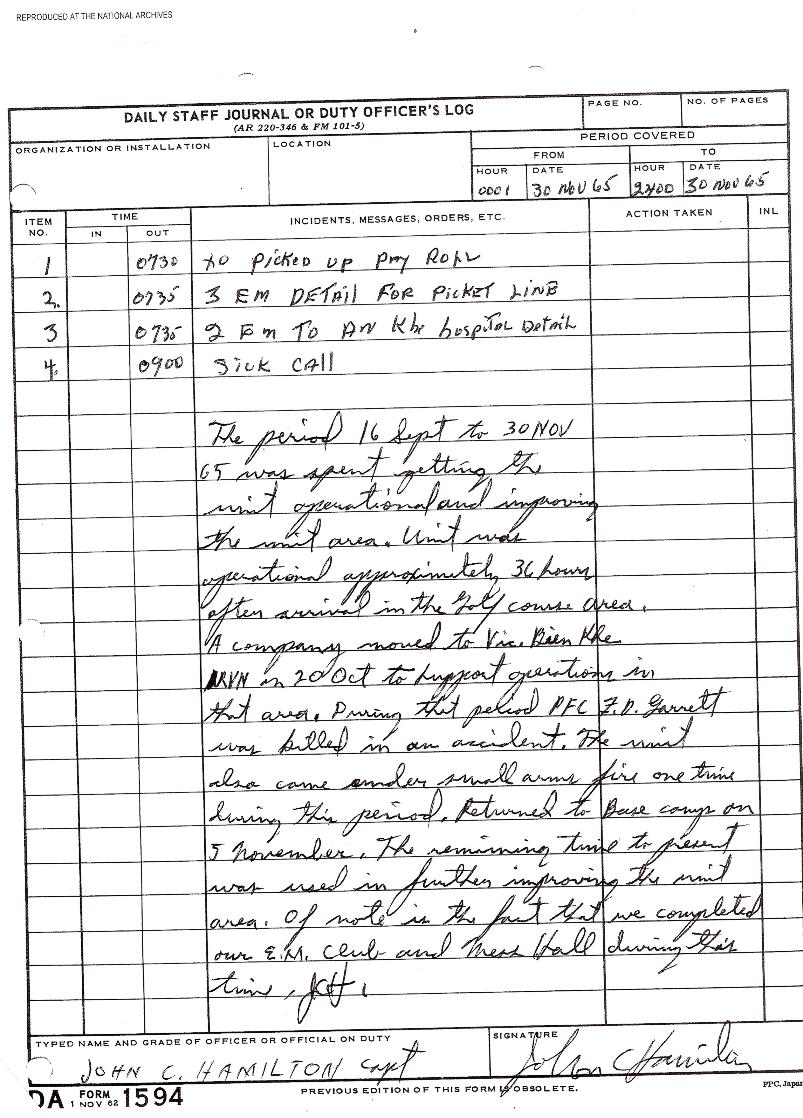 REPRODUCED AT THE NATIONAL ARCHIVES
DAILY STAFF JOURNAL OR DUTY OFFICER'S LOG
(AR 220-346 & FM 101-5)
PAGE NO.
NO. OF PAGES
ORGANIZATION OR INSTALLATION
LOCATION
PERIOD COVERED
FROM
TO
HOUR DATE HOUR DATE
0001 30 NOV 65 2400 30 NOV 65
ITEM NO.
TIME
IN OUT
INCIDENTS, MESSAGES, ORDERS, ETC.
ACTION TAKEN
INL
1 0730 XO Picked up pay Roll
2. 0735 3 EM DETAIL FOR PICKET LINE
3 0735 2 Em To AN Khe hospital Detail
4. 0900 Sick CAll
The period 16 Sept to 30 NOV
65 was spent getting the
unit operational and improving
the unit area. Unit was
operational approximately 36 hours
after arrival in the Golf course area.
A company moved to Vic. Bien Khe
ARVN on 20 Oct to support operations in
that area. During that period PFC F.D. Garrett
was killed in an accident. The unit
also came under small arms fire one time
during this period. Returned to Base camp on
5 November. The remaining time to present
was used in further improving the unit
area. Of note is the fact that we completed
our E.M. Club and Mess Hall during this
time. JCH
TYPED NAME AND GRADE OF OFFICER OR OFFICIAL ON DUTY
JOHN C. HAMILTON Capt
SIGNATURE
John C Hamilton
DA FORM 1 NOV 62 1594
PREVIOUS EDITION OF THIS FORM IS OBSOLETE.
PPC, Japan